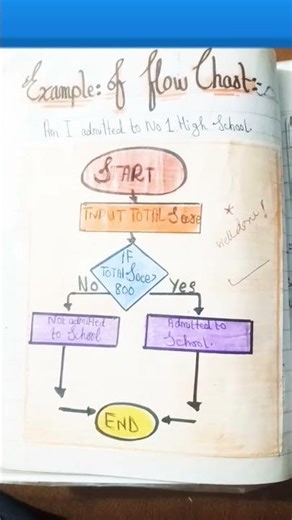 Example: of flow Chart:-
Am I admitted to No 1 High School.
START
INPUT TOTAL Score
IF
TOTAL Score>
800
No
Yes
Not admitted
to School
Admitted to
School.
Well done!
END